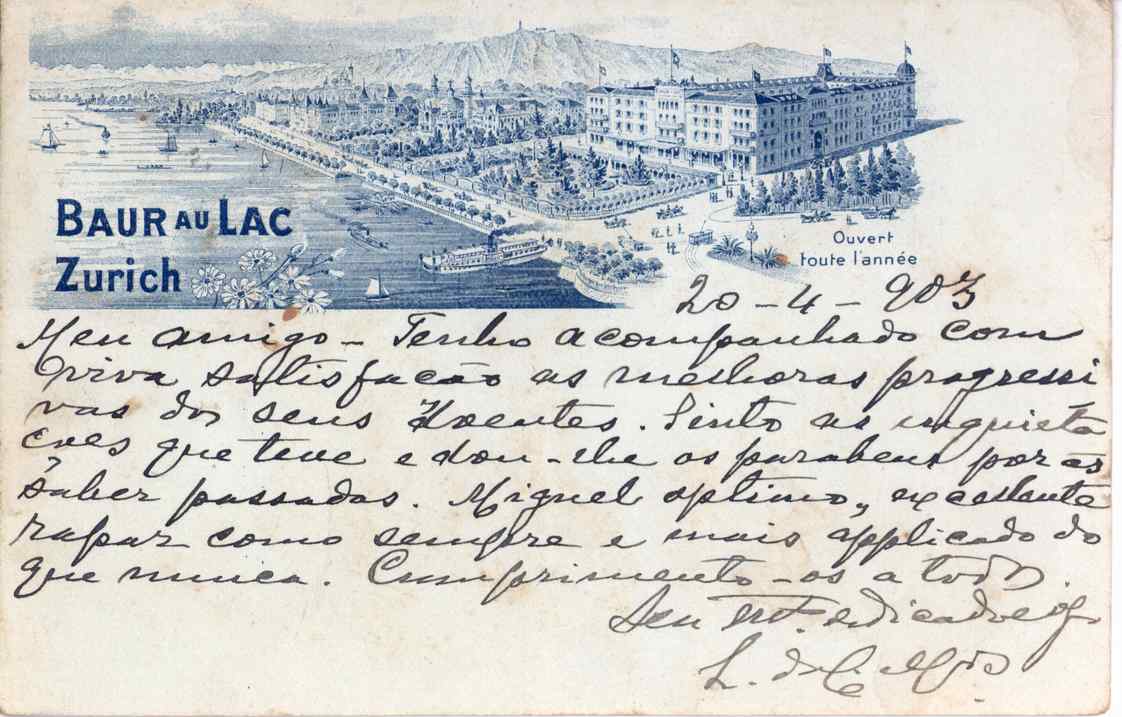 BAUR AU LAC
Zurich
Ouvert
toute l'année
20-4-903
Meu amigo - Tenho acompanhado com
viva satisfação as melhoras progressi
vas dos seus doentes. Sinto as inquieta
ções que teve e dou-lhe os parabens por as
saber passadas. Miguel optimo, excellente
rapaz como sempre e mais applicado do
que nunca. Cumprimento-os a todos.
Seu dedicado
L. de C.